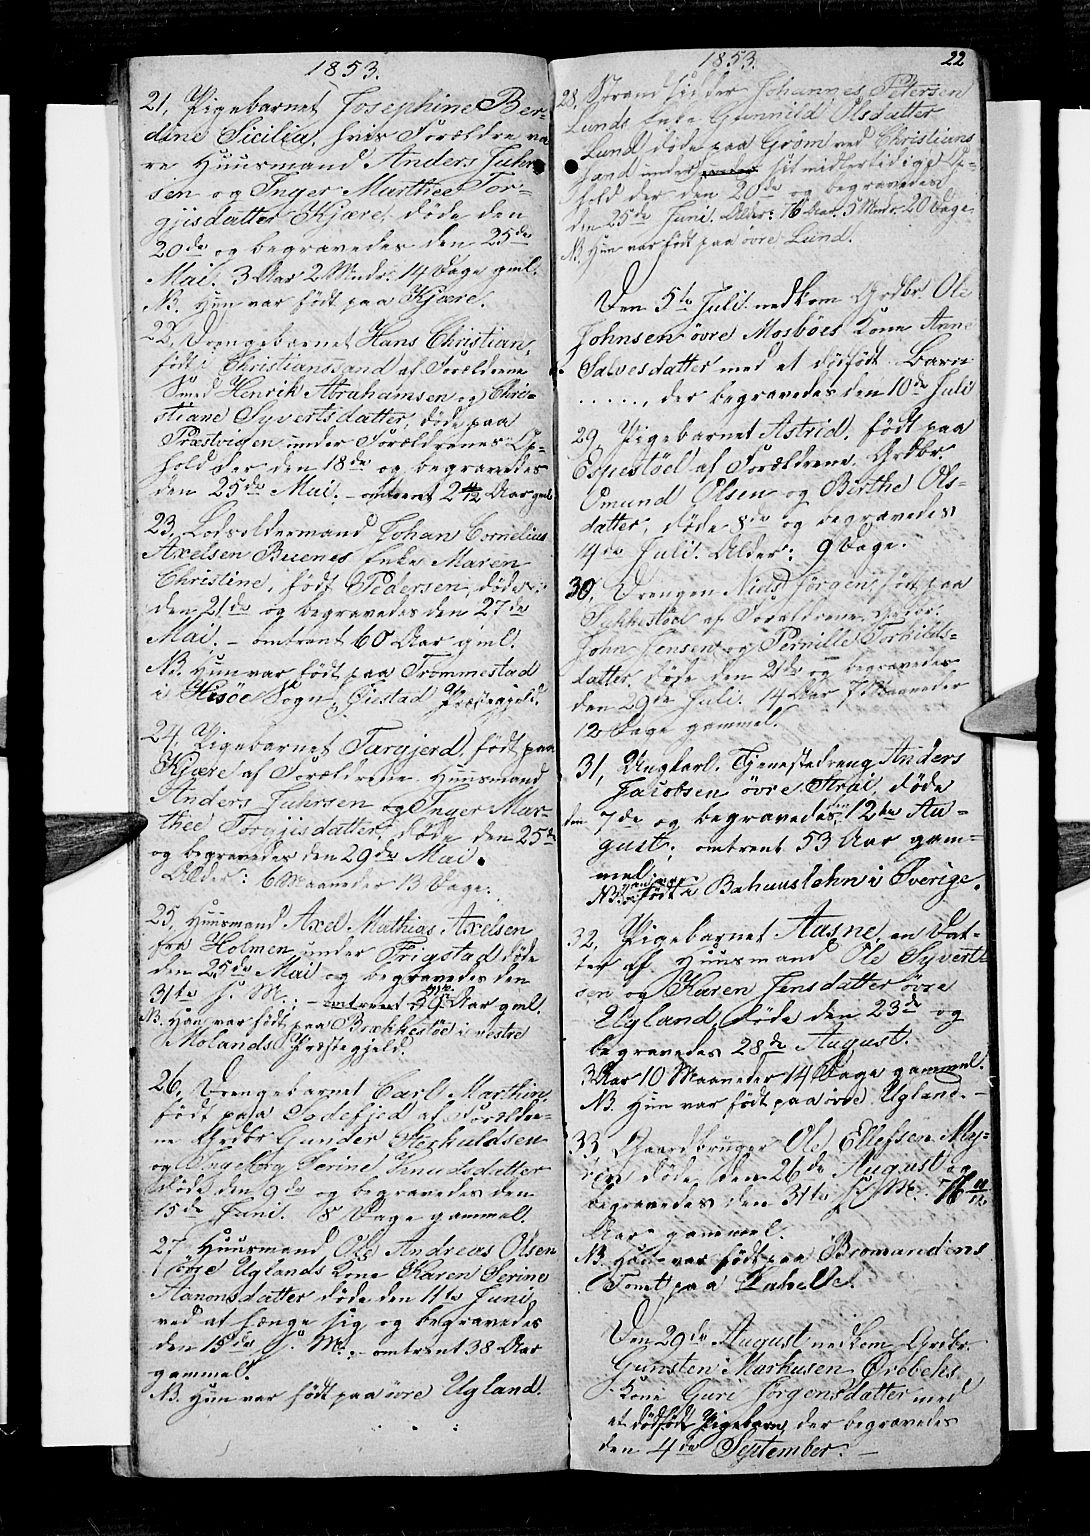 1853.
21, Pigebarnet Josephine Ber-
dine Sicilia, hvis Forældre va-
re Huusmand Anders Juhr-
sen og Inger Marthee Tor-
gjisdatter Kjære, døde den
20de og begravedes den 25de
Mai. 3 Aar 2 Mndr. 14 Dage gml.
NB. Hun var født paa Kjære.
22, Drengebarnet Hans Christian,
født i Christianssand af Forældrene
Smed Henrik Abrahamsen og Chri-
stiane Syvertsdatter, døde paa
Præstvigen under Forældrenes Op-
hold der den 18de og begravedes
den 25de Mai. – omtrent 2 4/12 Aar gml
23, Lodsoldermand Johan Cornelius
Axelsen Buenes Enke Maren
Christine, født Pedersen, døde
den 21de og begravedes den 27de
Mai. – omtrent 60 Aar gml.
NB. Hun var født paa Trommestad
i Hisøe Sogn, Øiestad Præstegjeld.
24, Pigebarnet Targjerd, født paa
Kjære af Forældrene Huusmand
Anders Juhrsen og Inger Mar-
thee Torgjisdatter, døde den 25de
og begravedes den 29de Mai.
Alder: 6 Maaneder 13 Dage.
25, Huusmand Axel Mathias Axelsen
fra Holmen under Frigstad døde
den 25de Mai og begravedes den
31te s. M.; – omtrent Aar gml.
NB. Han var født paa Brækkestøe i vestre
Molands Præstegjeld.
26, Drengebarnet Carl Marthin
født paa Sodefjed af Forældre-
ne Grdbr Gunder Sterkuldsen
og Ingeborg Serine Knudsdatter
døde den 9de og begravedes den
15de Juni. 8 Dage gammel.
27, Huusmand Ole Andreas Olsen
øvre Uglands Kone Karen Serine
Aanonsdatter døde den 11te Juni
ved at hænge sig og begravedes
den 15de s. M.; – omtrent 38 Aar
gammel.
NB. Hun var født paa øvre Ugland.
1853.
22
28, Strandsidder Johannes Petersen
Lunds Enke Gunnild Olsdatter
Lund døde paa Grøm ved Christians
sand under sit midlertidige Op-
hold der den 20de og begravedes
den 25de Juni. Alder: 76 Aar 5 Mndr. 20 Dage
NB. Hun var født paa øvre Lund.
Den 5te Juli nedkom Grdbr. Ole
Johnsen øvre Mosbøes Kone Anne
Salvesdatter med et dødfødt Barn
......, der begravedes den 10de Juli
29, Pigebarnet Astrid, født paa
Espestøel af Forældrene Grdbr.
Omund Olsen og Birthe Ols-
datter, døde 8de og begravedes
14de Juli. Alder: 9 Dage.
30, Drengen Niels Jørgen, født paa
Sekkestøel af Forældrene Grdbr.
John Jensen og Pernille Torkilds-
datter døde den 21de og begravedes
den 29de Juli. 14 Aar 7 Maaneder
12 Dage gammel.
31, Ungkarl, Tjenestedreng Anders
Jacobsen øvre Strai, døde
den 7de og begravedes den 12te Au-
gust; omtrent 53 Aar gam-
mel.
NB. Han var født i Bahuuslehn i Sverige.
32, Pigebarnet Aasne, en Dat-
ter af Huusmand Ole Syvert-
sen og Karen Jensdatter øvre
Ugland, døde den 23de og
begravedes 28de August.
3 Aar 10 Maaneder 14 Dage gammel.
NB. Hun var født paa øvre Ugland. –
33, Gaardbruger Ole Ellefsen Myr-
en døde den 26de August og
begravedes den 31te s. M. 76 11/12
Aar gammel.
NB. Han var født paa Bromandens
Tomt paa Lahelle.
Den 29de August nedkom Grdbr.
Gunsten Markusen Ørebeks
Kone Guri Jørgensdatter med
et dødfødt Pigebarn, der begravedes
den 4de September. –